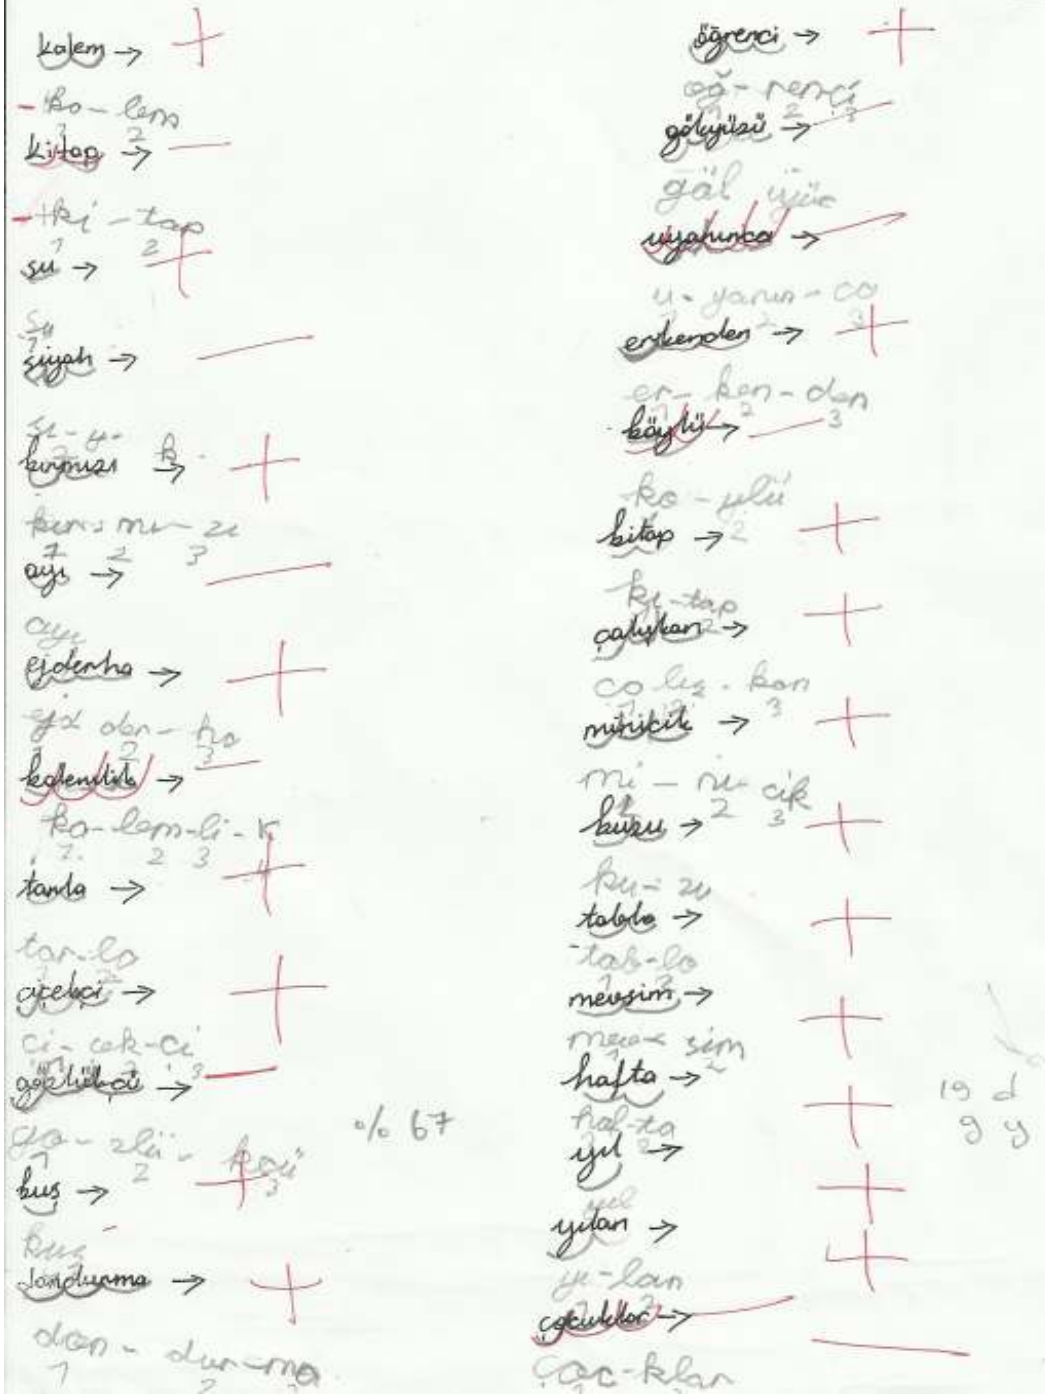 kalem →
ka-lem
1 2
kitap →
ki-tap
1 2
su →
su
1
siyah →
sı-y-
kırmızı →
kır-mı-zı
1 2 3
ayı →
ayı
ejderha →
der-ha
2 3
kalemlik →
ka-lem-li-k
1 2 3 4
tarla →
tar-la
1 2
çiçekçi →
çi-çek-çi
3
gözlükçü →
gö-zlü-kçü
1 2 3
% 67
kuş →
kuş
dondurma →
don-dur-ma
1 2
öğrenci →
öğ-renci
1 2 3
gökyüzü →
uyanınca →
u-yanın-ca
3
erkenden →
er-ken-den
1 2 3
köylü →
kö-ylü
1 2
kitap →
ki-tap
1 2
çalışkan →
ça lış-kan
1 2 3
minicik →
mi-ni-cik
1 2 3
kuzu →
ku-zu
tabla →
tab-la
1 2
mevsim →
mev-sim
1 2
hafta →
haf-ta
1 2
19 d
9 y
yıl →
yıl
yılan →
yı-lan
1 2
çocuklar →
çoc-klar